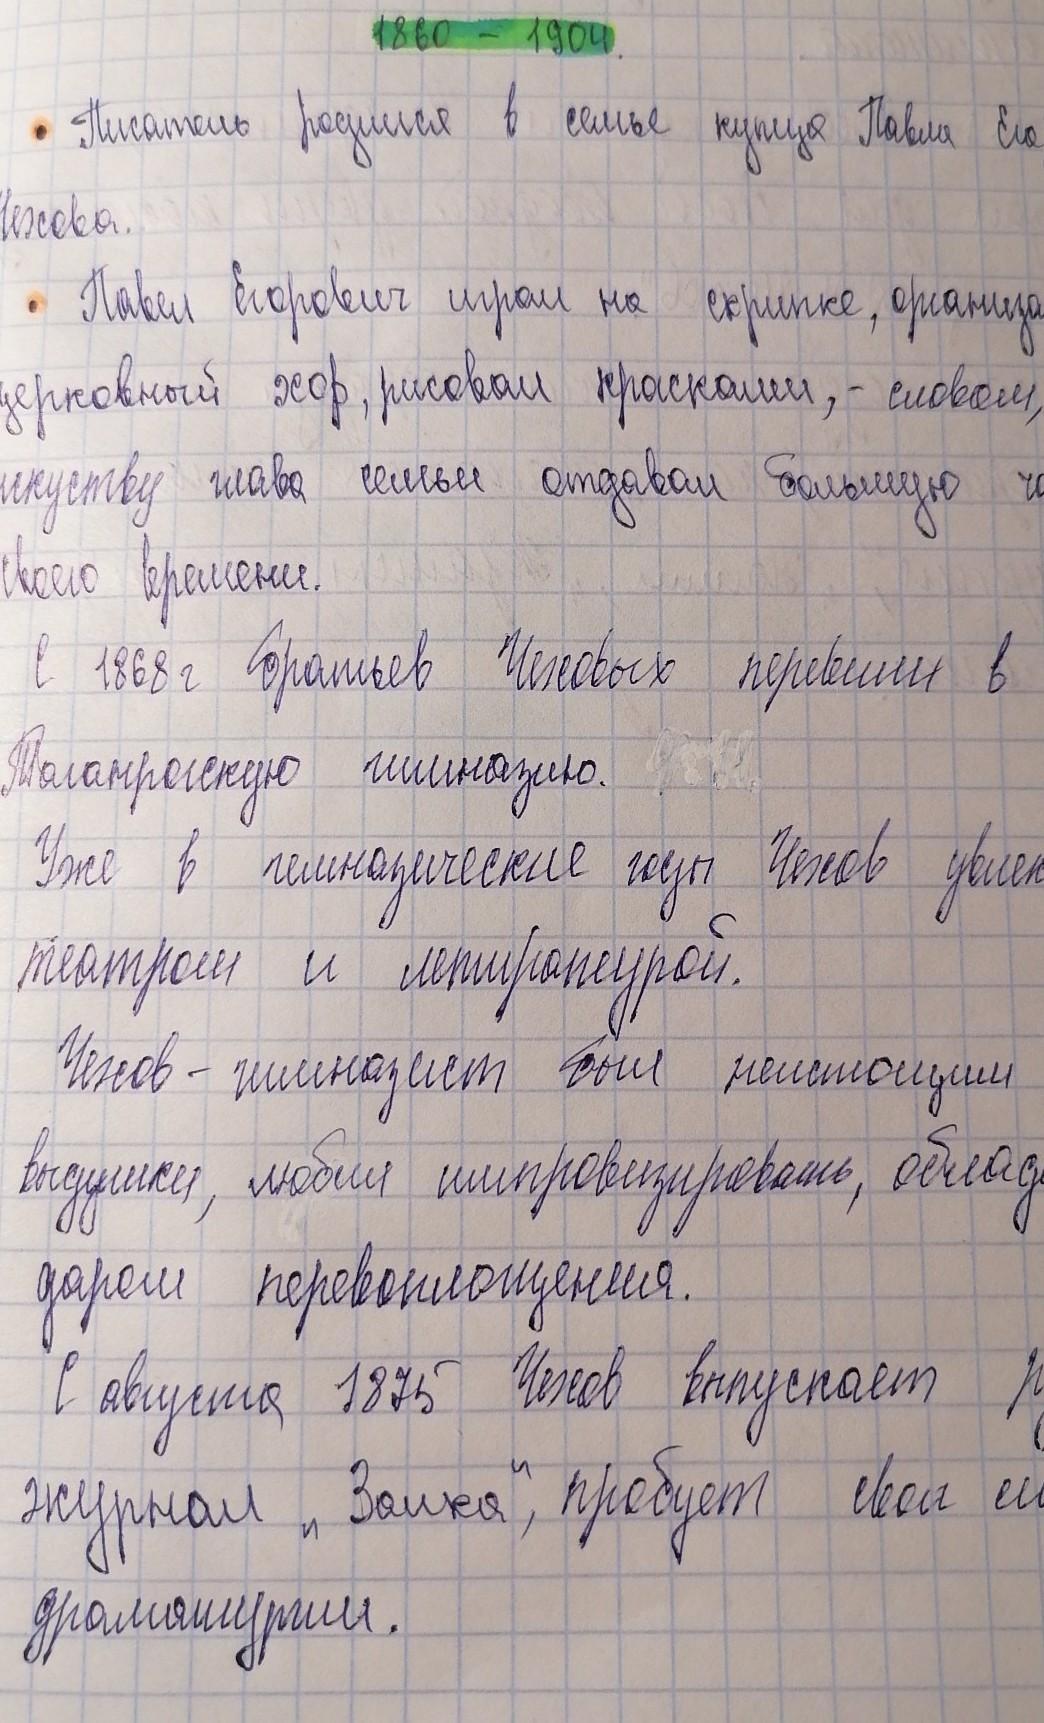 1860 – 1904.
• Писатель родился в семье купца Павла Его
Чехова.
• Павел Егорович играл на скрипке, организа
церковный хор, рисовал красками, - словом,
искуству глава семьи отдавал большую ча
своего времени.
С 1868г братьев Чеховых перевели в
Таганрогскую гимназию.
Уже в гимназические годы Чехов увлек
театром и литературой.
Чехов - гимназист был неистощим
выдумки, любил импровизировать, облада
даром перевоплощения.
С августа 1875 Чехов выпускает р
журнал „Заика“, пробует свои си
драматургии.